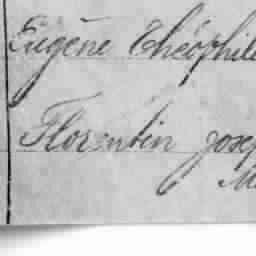 Eugène Théophile
Florentin Josep
M